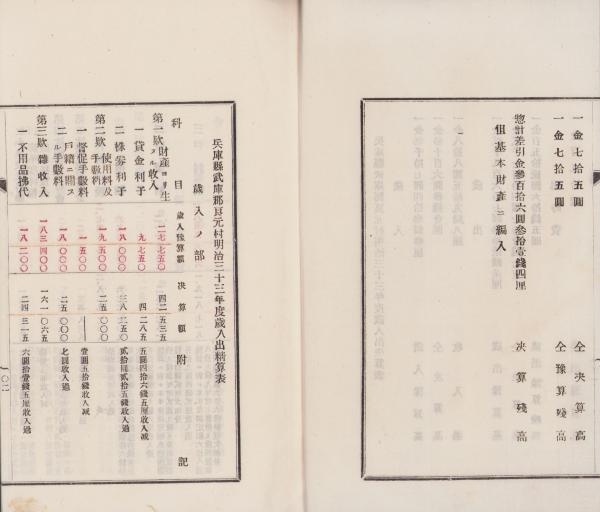 一金七拾五圓　仝決算高
一金七拾五圓　仝豫算殘高
惣計差引金參百拾六圓參拾壹錢四厘　決算殘高
但基本財產ニ編入
兵庫縣武庫郡良元村明治三十三年度歲入出精算表
歲入ノ部
科目　歲入豫算額　決算額　附記
第一款財產ヨリ生スル收入　二七、七五〇　四二五三五
一貸金利子　九、七五〇　四二八五　五圓四拾六錢五厘收入減
二株劵利子　一八、〇〇〇　三八二五〇　貳拾圓貳拾五錢收入過
第二款使用料及手數料　一九、五〇〇　二五〇〇〇
一督促手數料　一、五〇〇　壹圓五拾錢收入減
二戶籍ニ關スル手數料　一八、〇〇〇　二五〇〇〇　七圓收入過
第三款雜收入　一八三、四〇〇　一六一〇六五
一不用品拂代　一八、二〇〇　二四三一五　六圓拾壹錢五厘收入過